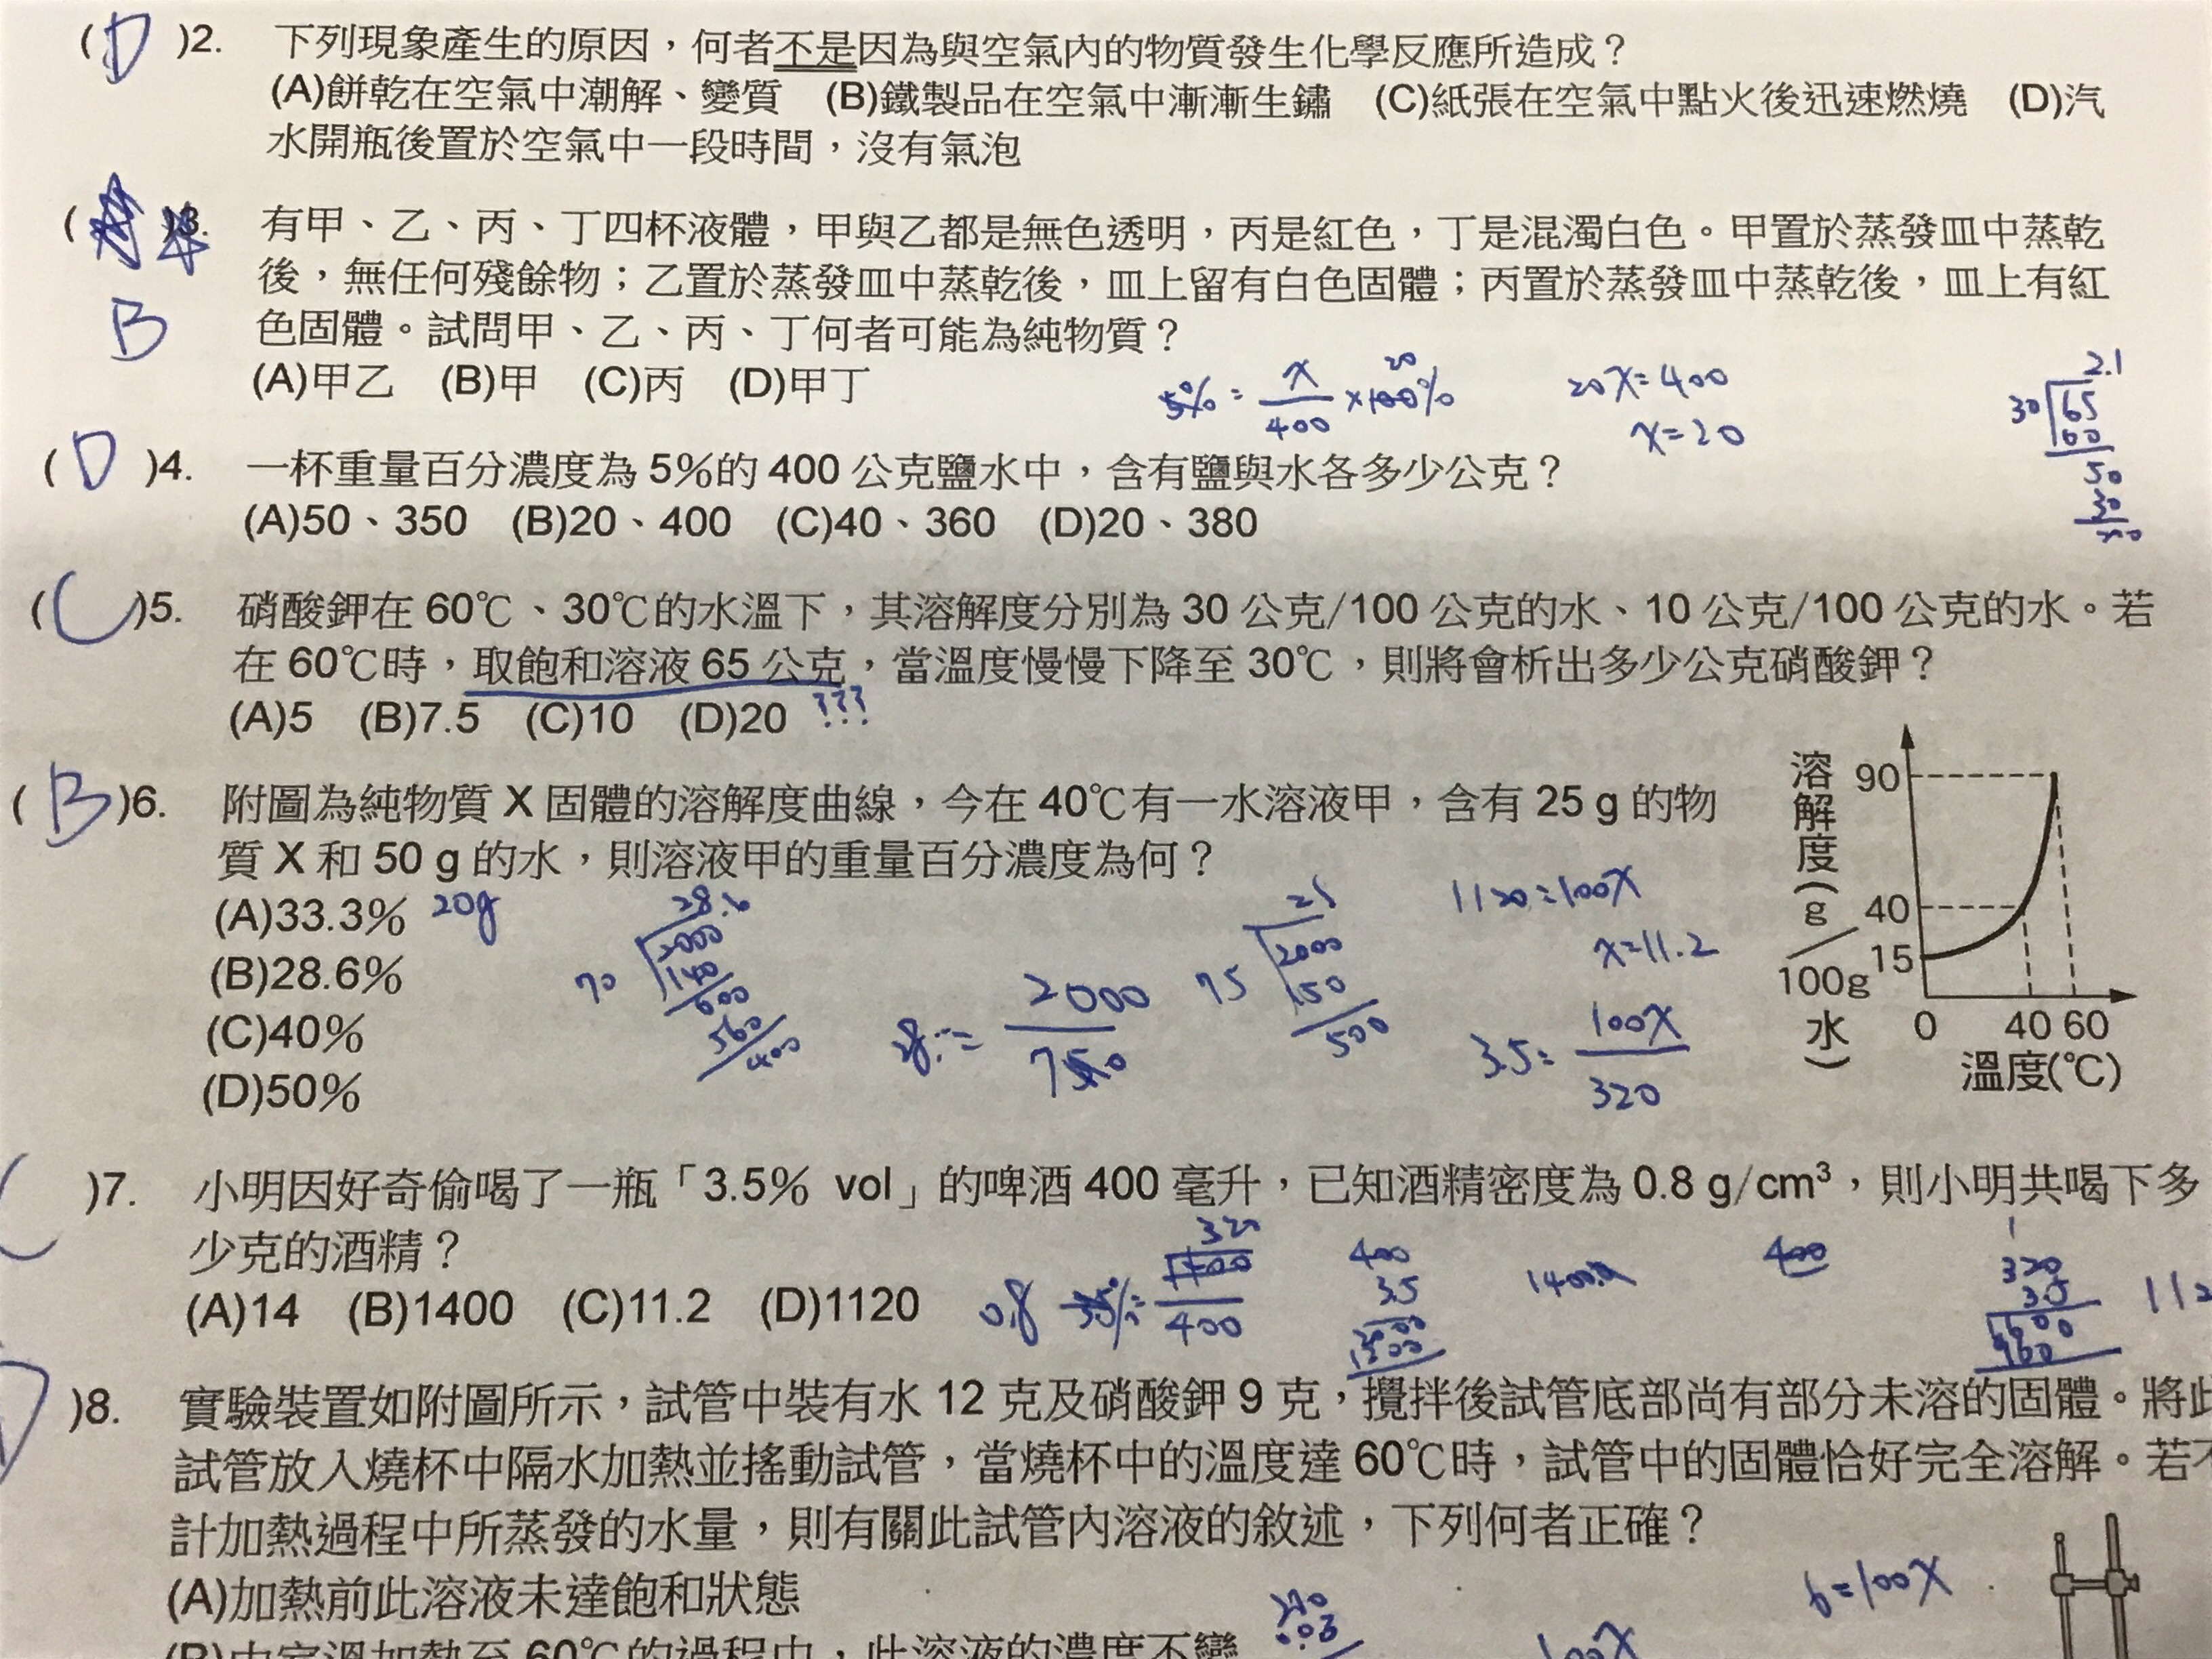 (D)2. 下列現象產生的原因，何者不是因為與空氣內的物質發生化學反應所造成？
(A)餅乾在空氣中潮解、變質 (B)鐵製品在空氣中漸漸生鏽 (C)紙張在空氣中點火後迅速燃燒 (D)汽
水開瓶後置於空氣中一段時間，沒有氣泡
( )3. 有甲、乙、丙、丁四杯液體，甲與乙都是無色透明，丙是紅色，丁是混濁白色。甲置於蒸發皿中蒸乾
後，無任何殘餘物；乙置於蒸發皿中蒸乾後，皿上留有白色固體；丙置於蒸發皿中蒸乾後，皿上有紅
B 色固體。試問甲、乙、丙、丁何者可能為純物質？
(A)甲乙 (B)甲 (C)丙 (D)甲丁
5% = x/400 ×100% 20
20x=400
x=20
2.1
30 65
60
50
30
(D)4. 一杯重量百分濃度為 5%的 400 公克鹽水中，含有鹽與水各多少公克？
(A)50、350 (B)20、400 (C)40、360 (D)20、380
(C)5. 硝酸鉀在 60℃、30℃的水溫下，其溶解度分別為 30 公克/100 公克的水、10 公克/100 公克的水。若
在 60℃時，取飽和溶液 65 公克，當溫度慢慢下降至 30℃，則將會析出多少公克硝酸鉀？
(A)5 (B)7.5 (C)10 (D)20 ???
(B)6. 附圖為純物質 X 固體的溶解度曲線，今在 40℃有一水溶液甲，含有 25 g 的物
質 X 和 50 g 的水，則溶液甲的重量百分濃度為何？
(A)33.3% 20g
(B)28.6%
(C)40%
(D)50%
28.6
70 2000
140
600
560
400
2000
75 2000
150
500
1120=100x
x=11.2
3.5= 100x
320
溶解度(g/100g水)
90
40
15
0 40 60
溫度(℃)
(C)7. 小明因好奇偷喝了一瓶「3.5% vol」的啤酒 400 毫升，已知酒精密度為 0.8 g/cm³，則小明共喝下多
少克的酒精？
(A)14 (B)1400 (C)11.2 (D)1120
0.8
320
400
400
3.5
400
320
3.5
1600
960
D )8. 實驗裝置如附圖所示，試管中裝有水 12 克及硝酸鉀 9 克，攪拌後試管底部尚有部分未溶的固體。將此
試管放入燒杯中隔水加熱並搖動試管，當燒杯中的溫度達 60℃時，試管中的固體恰好完全溶解。若不
計加熱過程中所蒸發的水量，則有關此試管內溶液的敘述，下列何者正確？
(A)加熱前此溶液未達飽和狀態
6=100x
(B)由室溫加熱至 60℃的過程中，此溶液的濃度不變
100x